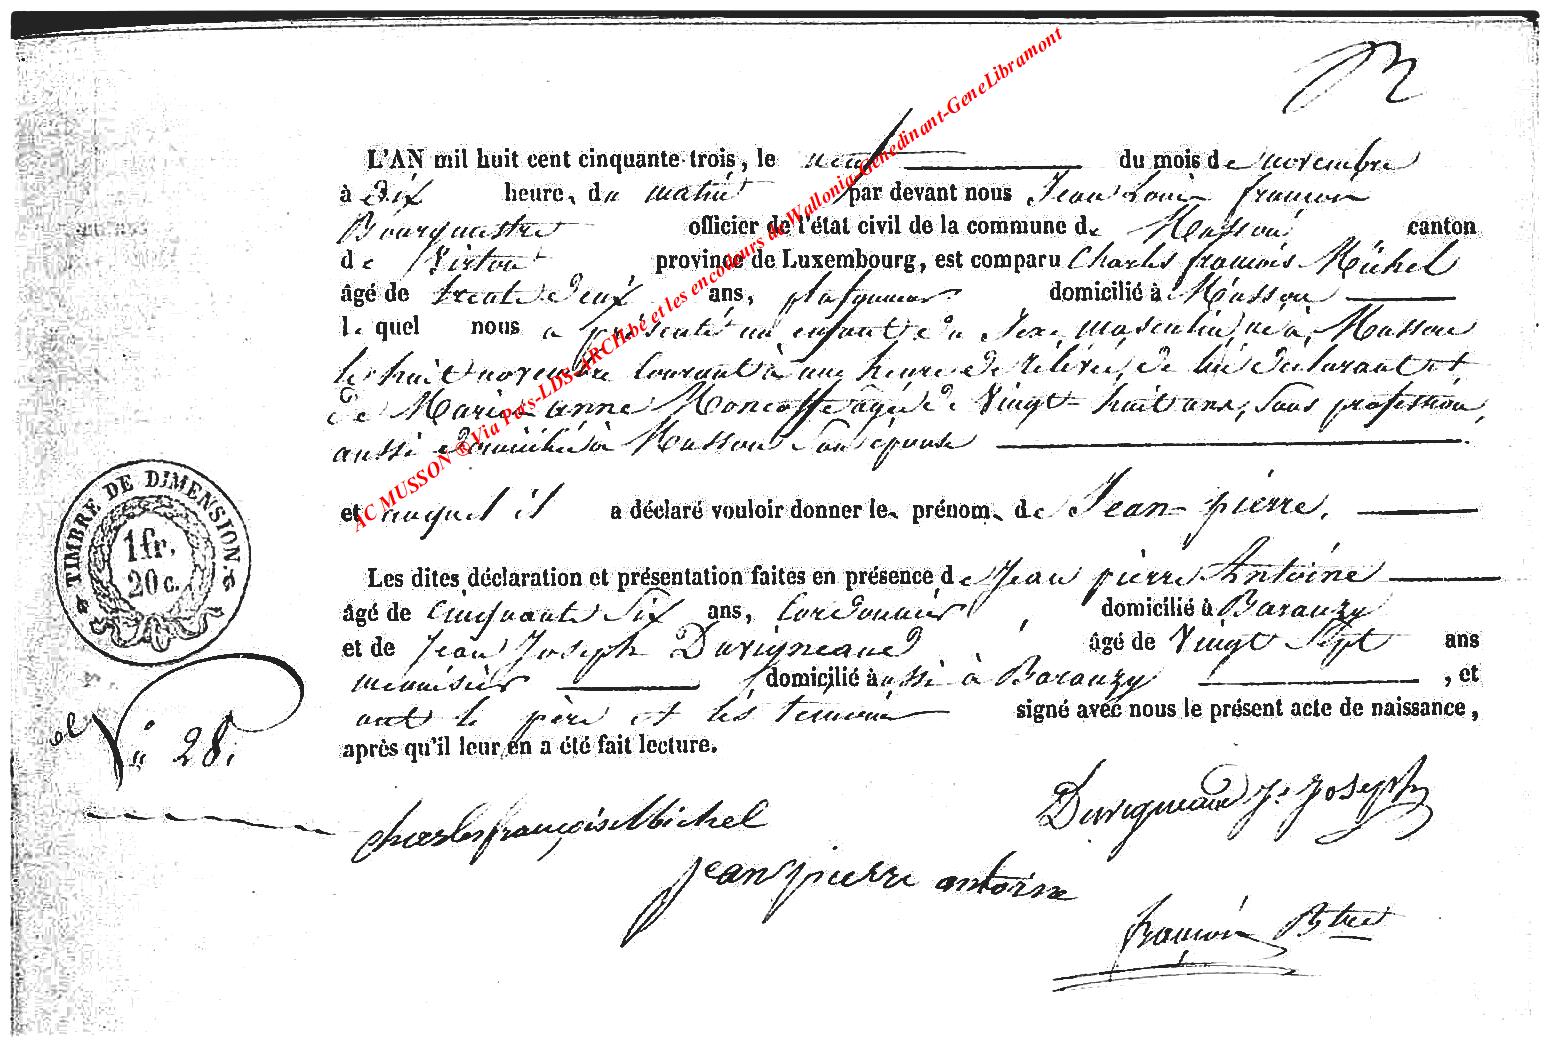 L'AN mil huit cent cinquante-trois, le neuf du mois de novembre
à dix heure, du matin par devant nous Jean Louis françois
Bourguestre officier de l'état civil de la commune de Musson canton
de Virton province de Luxembourg, est comparu Charles françois Michel
âgé de trente deux ans, domicilié à Musson
le quel nous a présenté un enfant du sexe masculin, né à Musson
le huit novembre courant à une heure de relevée, de lui déclarant et
de Marie-anne Moncousse agée de Vingt-huit ans, sans profession,
aussi domicilié à Musson son épouse
et auquel il a déclaré vouloir donner le prénom de Jean-pierre.
Les dites déclaration et présentation faites en présence de Jean pierre Antoine
âgé de Cinquant six ans, Cordonnier, domicilié à Baranzy
et de Jean Joseph Duvigneaud âgé de Vingt sept ans
menuisier domicilié aussi à Baranzy, et
ont le père et les témoins signé avec nous le présent acte de naissance,
après qu'il leur en a été fait lecture.
TIMBRE DE DIMENSION.
1 fr.
20 c.
N° 28.
charles françois Michel
Duvigneaud J. Joseph
jean pierre antoine
françois Btre
AC MUSSON ® Via Pars-LDS-ARCH.be et les encodeurs de Wallonia-Genedinant-GeneLibramont